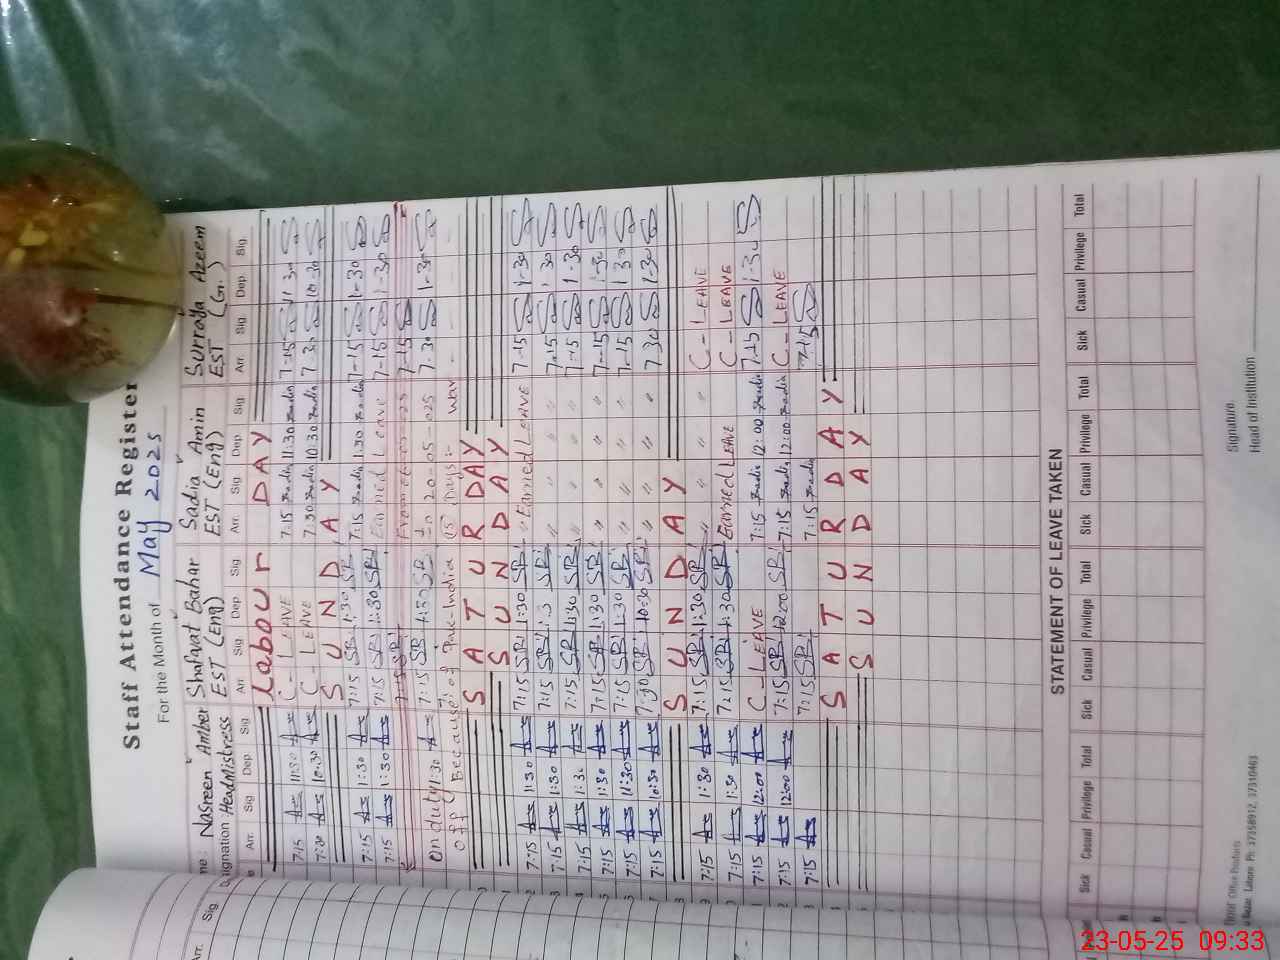 Staff Attendance Register
For the Month of May 2025
Nasreen Amber Shafaat Bahar Sadia Amin Surraya Azeem
Designation Headmistress EST (Eng) EST (Eng) EST (Gr.)
Arr. Sig Dep Sig Arr. Sig Dep Sig Arr. Sig Dep Sig. Arr. Sig. Dep. Sig.
Labour DAY
7:15 11:30 C - LEAVE 7:15 Sadia 11:30 Sadia 7-15 11-30
7:30 10:30 C - LEAVE 7:30 Sadia 10:30 Sadia 7-30 10-30
SUNDAY
7:15 1:30 7:15 SB 1:30 SB 7:15 Sadia 1:30 Sadia 7-15 1-30
7:15 1:30 7:15 SB 1:30 SB Earned Leave 7-15 1-30
7-15
On duty 1:30 7:15 SB 1:30 SB to 20-05-025 7-30 1-30
off (Because of Pak-India War
SATURDAY
SUNDAY
7:15 11:30 7:15 SB 1:30 SB Earned LEAVE 7-15 1-30
7:15 1:30 7:15 SB SB " " " 7-15 30
7:15 1:30 7:15 SB 1:30 SB " " " 7-15 1-30
7:15 1:30 7:15 SB 1:30 SB " " " 7-15 1-30
7:15 11:30 7:15 SB 1:30 SB " " " 7-15 1-30
7:15 10:30 7:30 SB 10:30 SB " " " 7-30 1-30
SUNDAY
7:15 1:30 7:15 SB 1:30 SB " " " C - LEAVE
7:15 1:30 7:15 SB 1:30 SB Earned LEAVE C - LEAVE
7:15 12:00 C - LEAVE 7:15 Sadia 12:00 Sadia 7-15 1-30
7:15 12:00 7:15 SB 12:00 SB 7:15 Sadia 12:00 Sadia C - LEAVE
7:15 7:15 SB 7:15 Sadia 7-15
SATURDAY
SUNDAY
STATEMENT OF LEAVE TAKEN
Sick Casual Privilege Total Sick Casual Privilege Total Sick Casual Privilege Total Sick Casual Privilege Total
Signature.
Head of Institution
Office Products
Bazar, Lahore Ph: 37358912, 37310463
Arr. Sig.
23-05-25 09:33